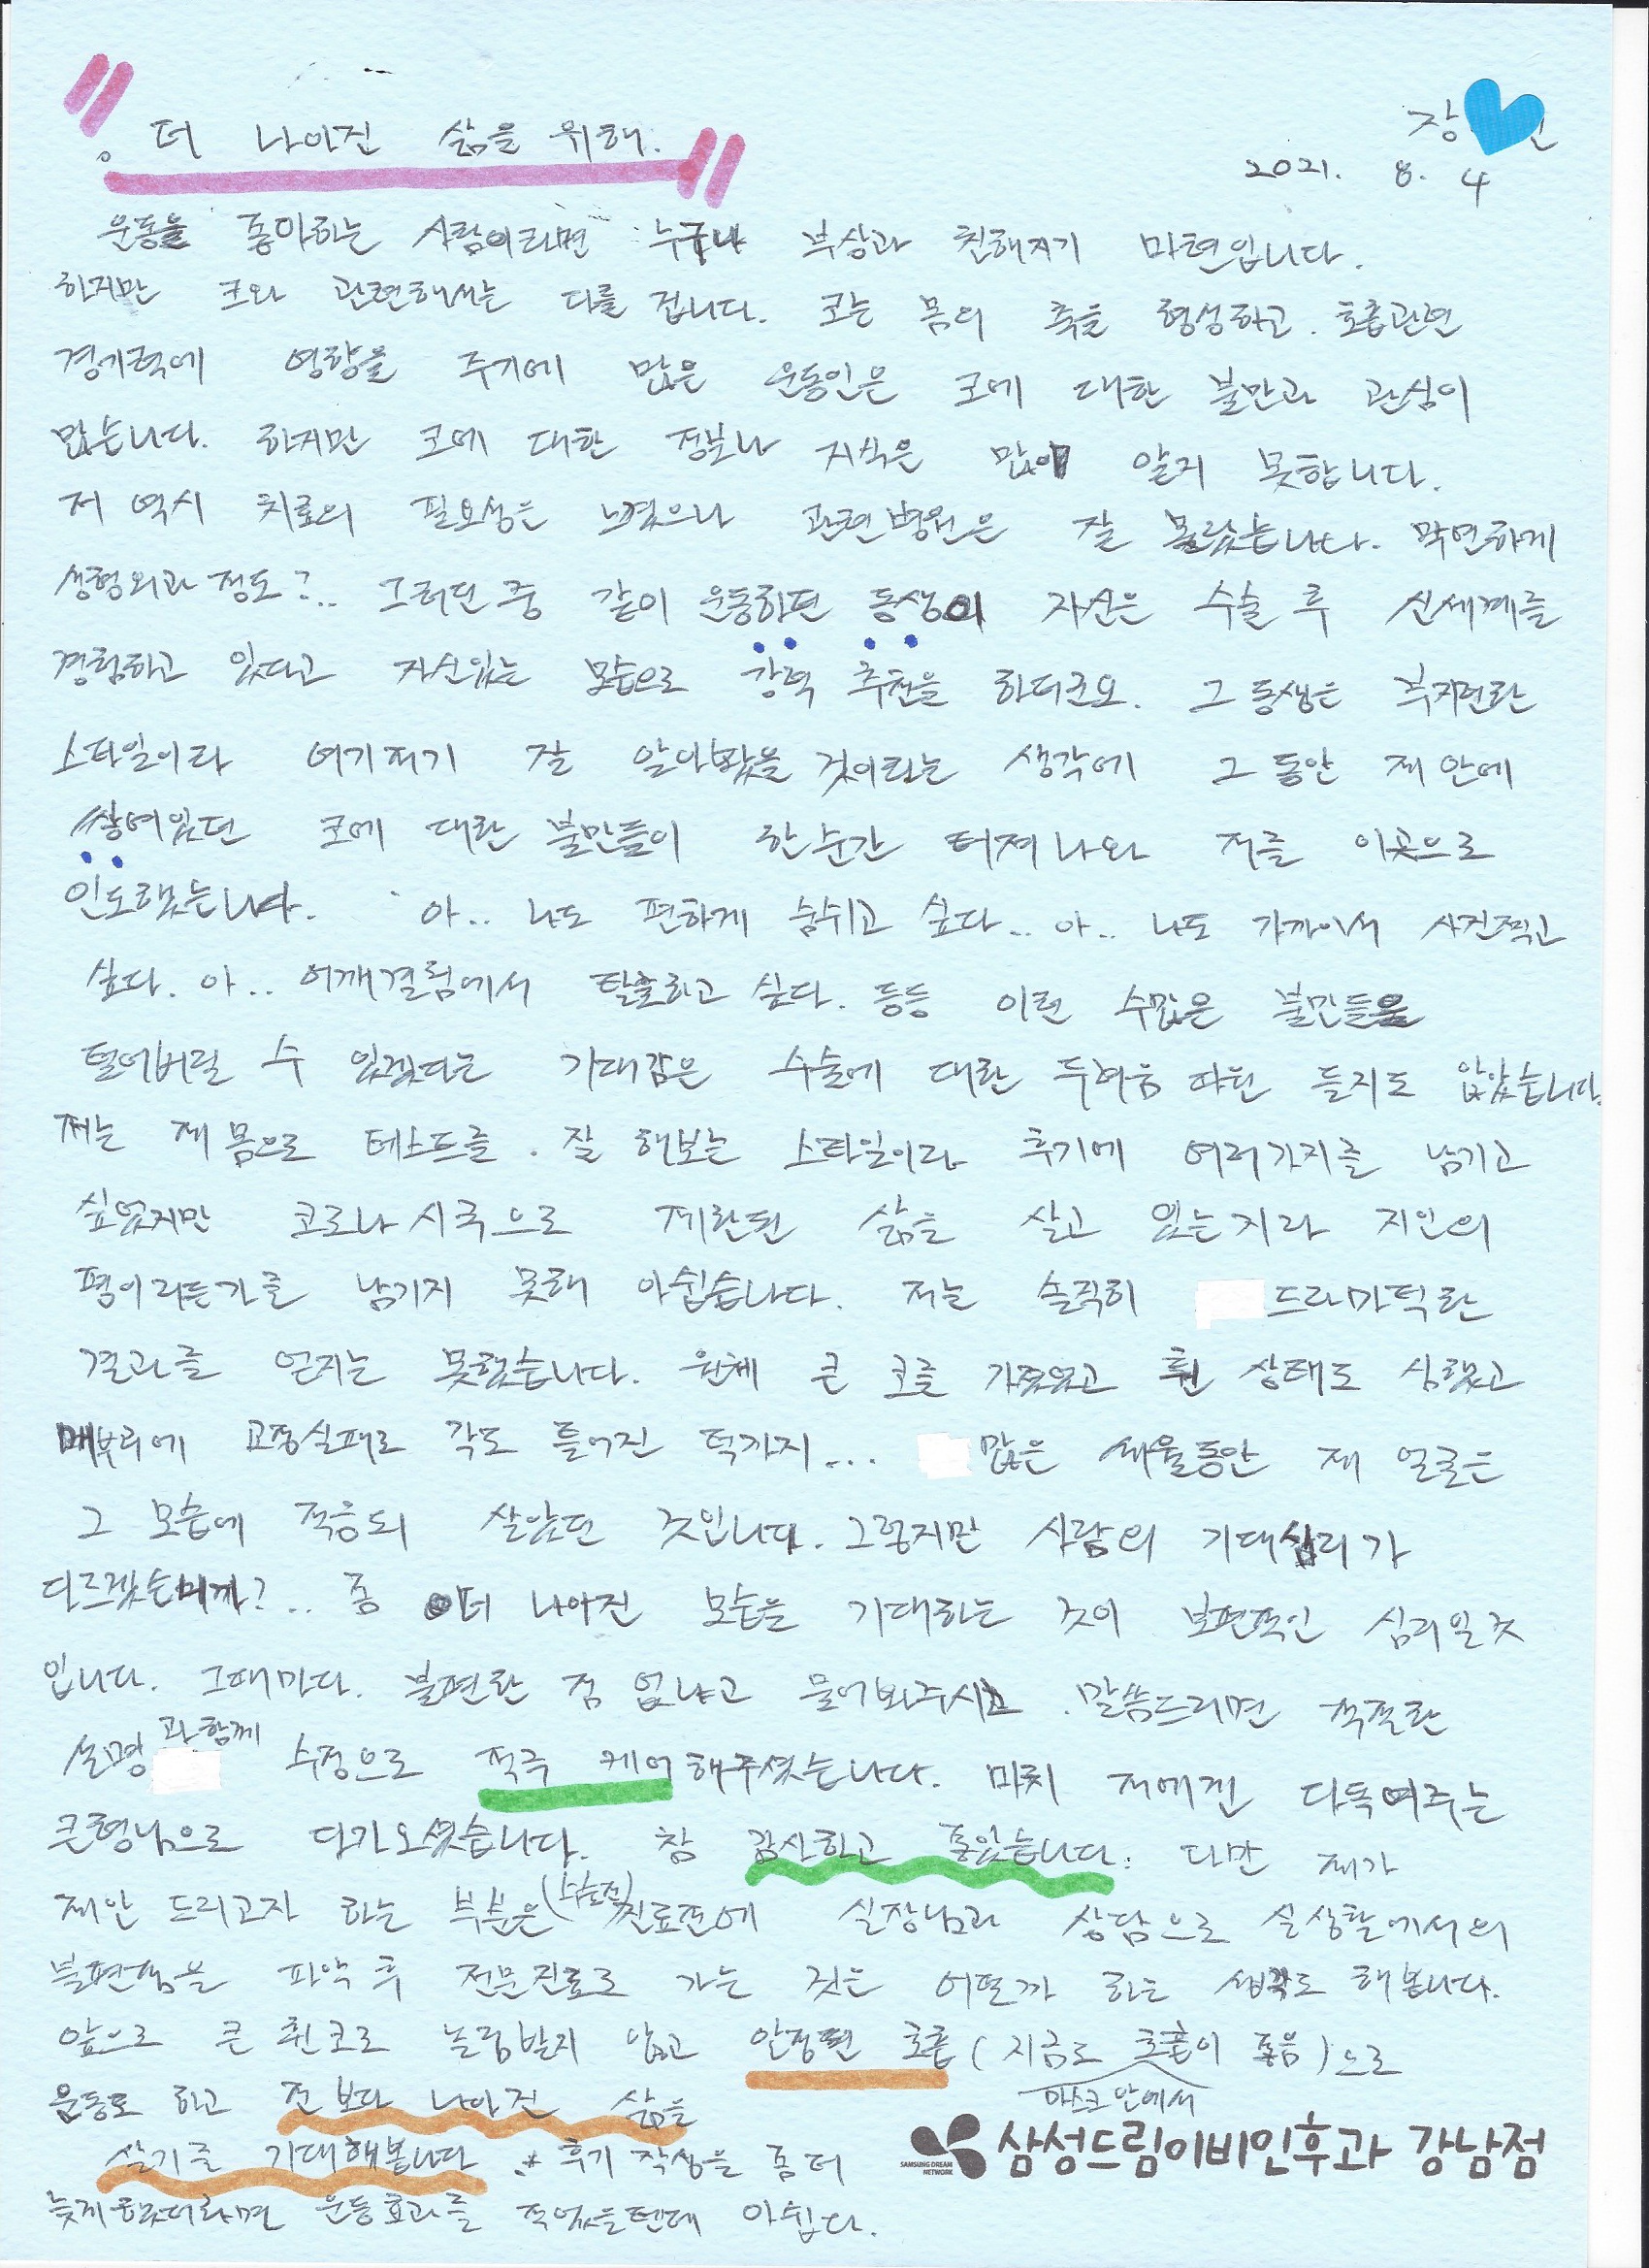 。 더 나아진 삶을 위해.
장
2021. 8. 4
운동을 좋아하는 사람이라면 누구나 부상과 친해지기 마련입니다.
하지만 코와 관련해서는 다를 겁니다. 코는 몸의 축을 형성하고. 호흡관련
경기력에 영향을 주기에 많은 운동인은 코에 대한 불만과 관심이
많습니다. 하지만 코에 대한 정보나 지식은 많이 알지 못합니다.
저 역시 치료의 필요성은 느꼈으나 관련병원은 잘 몰랐습니다. 막연하게
성형외과 정도?.. 그러던 중 같이 운동하던 동생이 자신은 수술 후 신세계를
경험하고 있다고 자신있는 모습으로 강력 추천을 하더군요. 그 동생은 부지런한
스타일이라 여기저기 잘 알아봤을 것이라는 생각에 그 동안 제 안에
쌓여있던 코에 대한 불만들이 한순간 터져나와 저를 이곳으로
인도했습니다. 아.. 나도 편하게 숨쉬고 싶다.. 아.. 나도 가까이서 사진찍고
싶다. 아.. 어깨결림에서 탈출하고 싶다. 등등 이런 수많은 불만들을
털어버릴 수 있겠다는 기대감은 수술에 대한 두려움 따윈 들지도 않았습니다.
저는 제 몸으로 테스트를. 잘 해보는 스타일이라 후기에 여러가지를 남기고
싶었지만 코로나 시국으로 제한된 삶을 살고 있는지라 지인의
평이라든가를 남기지 못해 아쉽습니다. 저는 솔직히 드라마틱한
결과를 얻지는 못했습니다. 원체 큰 코를 가졌었고 휜 상태도 심했고
매부리에 교정실패로 각도 틀어진 턱까지... 많은 세월동안 제 얼굴은
그 모습에 적응되 살았던 것입니다. 그렇지만 사람의 기대심리가
다르겠습니까?.. 좀 더 나아진 모습을 기대하는 것이 보편적인 심리일것
입니다. 그때마다. 불편한 점 없냐고 물어봐주시고. 말씀드리면 적절한
설명과 함께 수정으로 적극 케어해주셨습니다. 마치 저에겐 다독여주는
큰형님으로 다가오셨습니다. 참 감사하고 좋았습니다. 다만 제가
제안 드리고자 하는 부분은 (수술전) 진료전에 실장님과 상담으로 실생활에서의
불편함을 파악 후 전문진료로 가는 것은 어떤가 하는 생각도 해봅니다.
앞으로 큰 휜코로 놀림받지 않고 안정된 호흡 (지금도 마스크 안에서 호흡이 좋음)으로
운동도 하고 전 보다 나아진 삶을
살기를 기대해봅니다 .* 후기 작성을 좀 더
늦게 하였더라면 운동효과를 적었을텐데 아쉽다.
SAMSUNG DREAM
NETWORK
삼성드림이비인후과 강남점